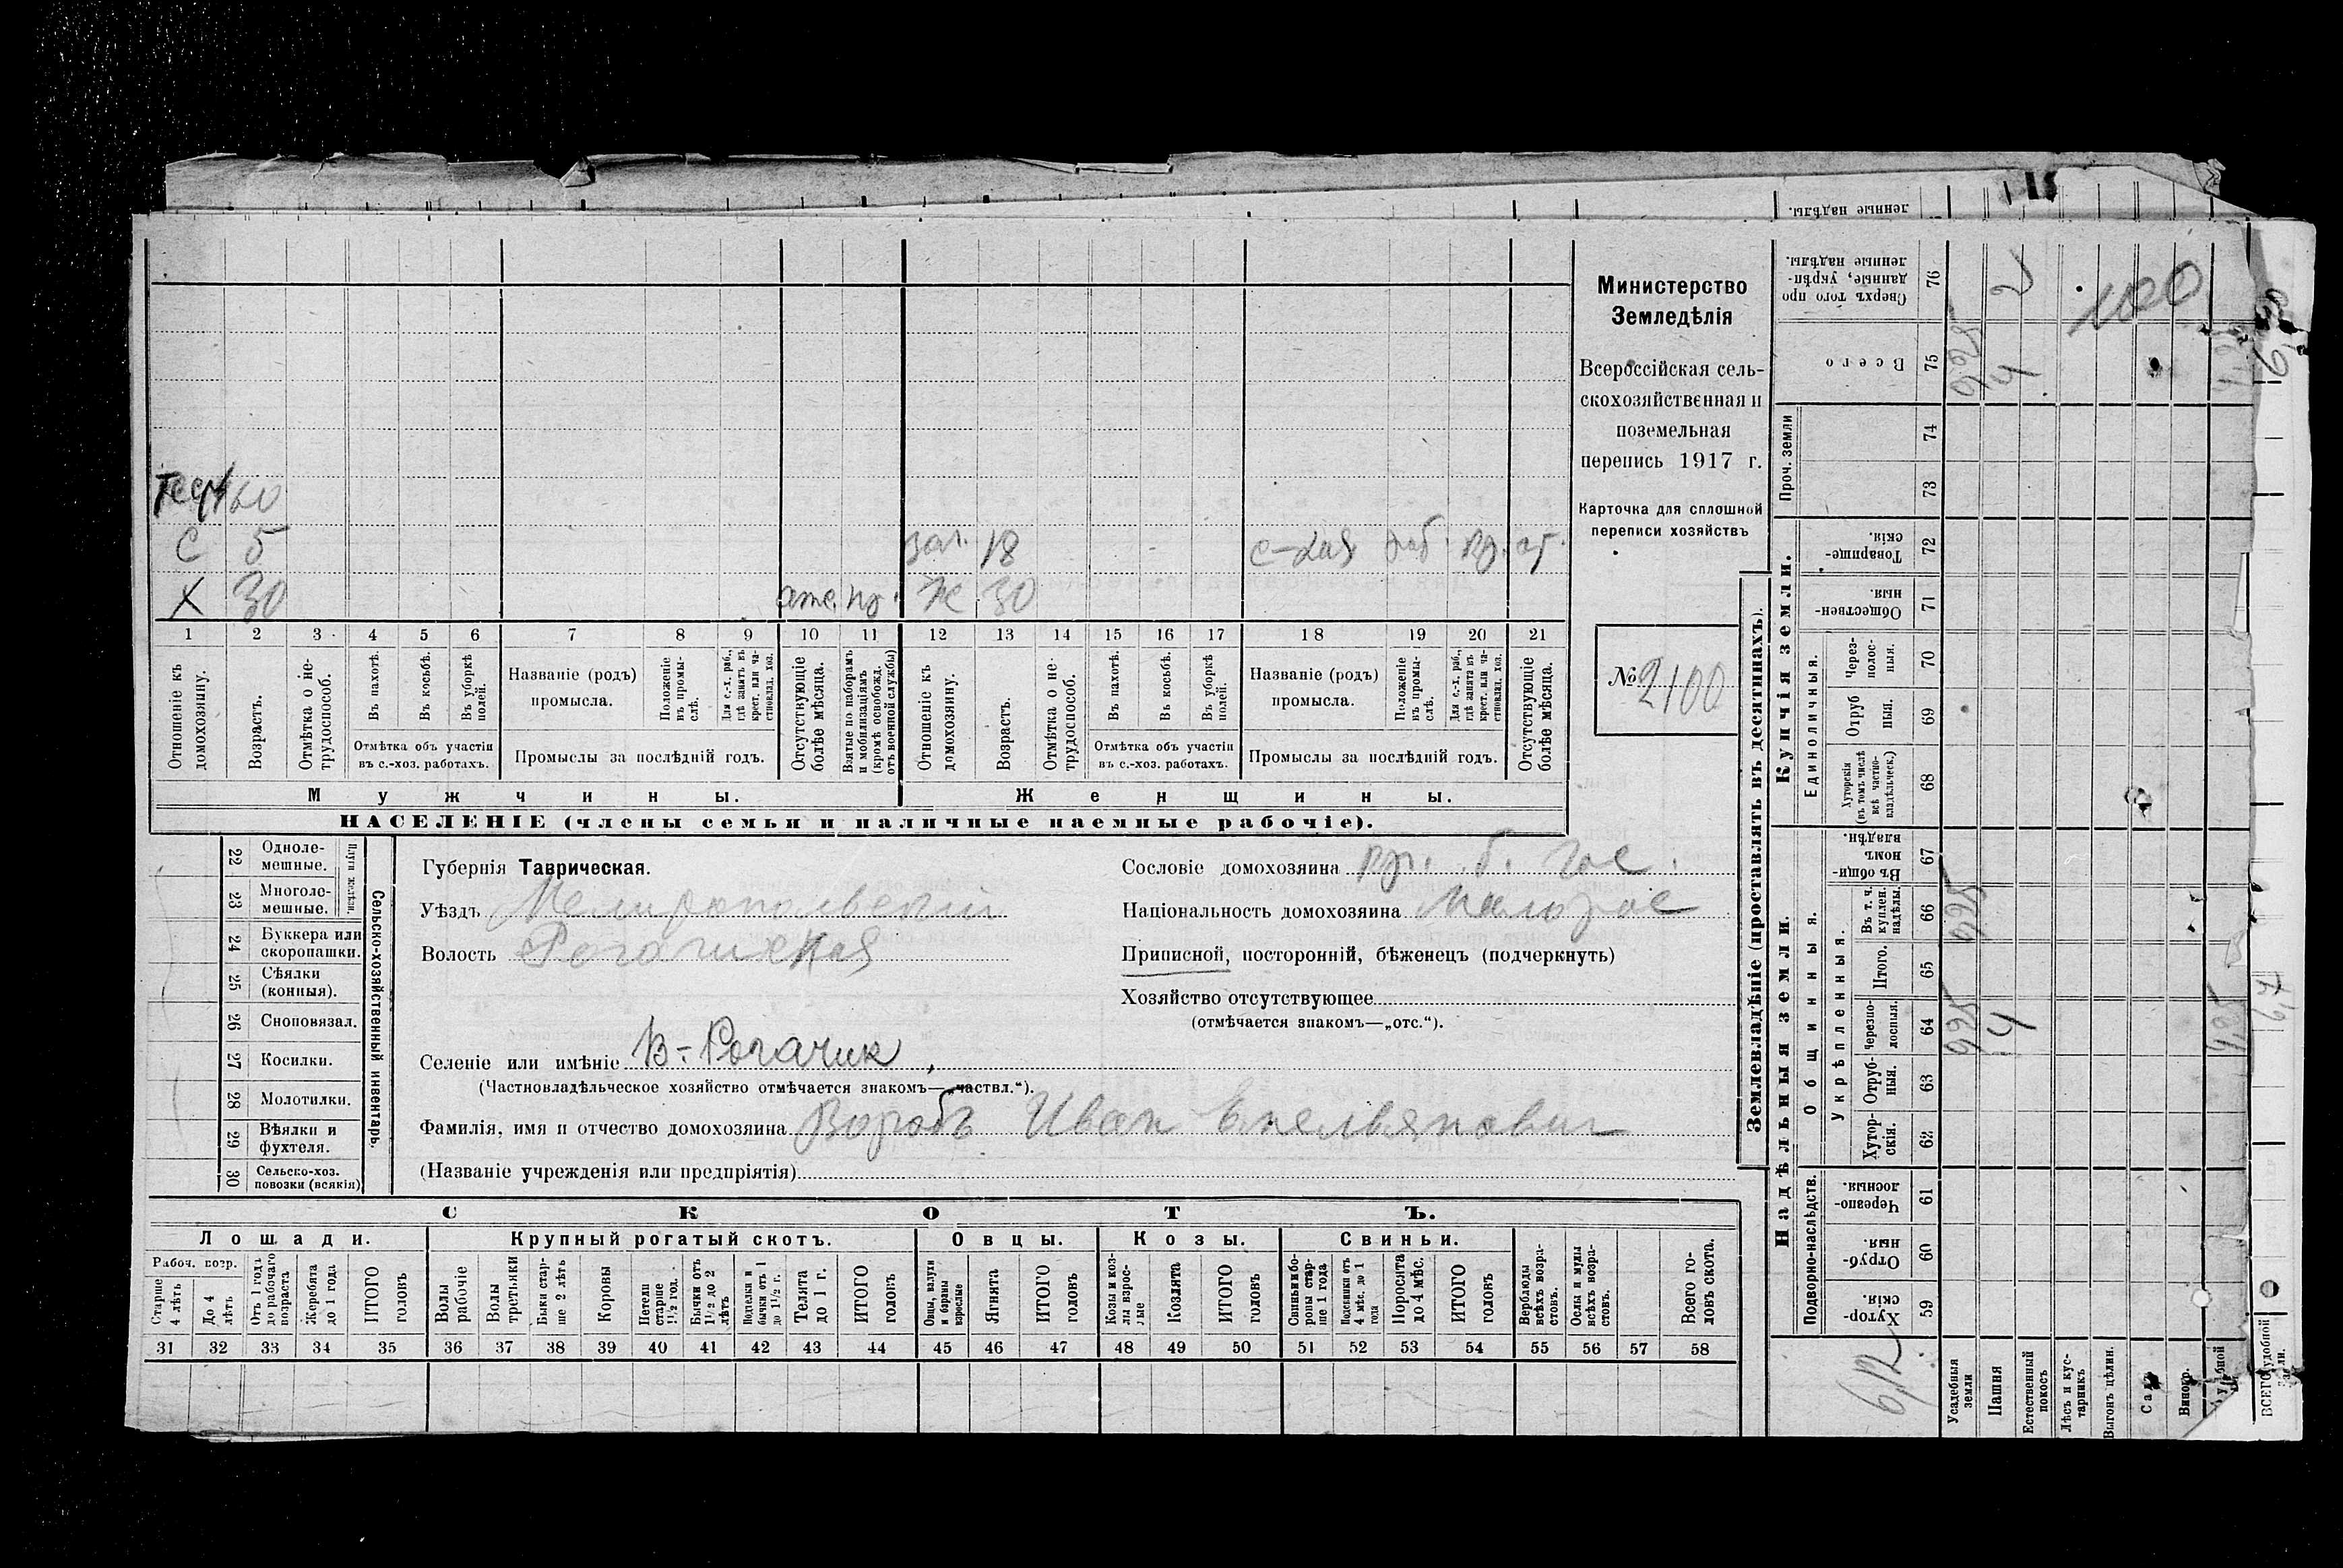 Министерство
Земледѣлія
Всероссійская сель-
скохозяйственная и
поземельная
перепись 1917 г.
Карточка для сплошной
переписи хозяйствъ
№ 2100
С 5
18
Х 30
Ж 30
1 2 3 4 5 6 7 8 9 10 11 12 13 14 15 16 17 18 19 20 21
Отношеніе къ домохозяину.
Возрастъ.
Отмѣтка о не-
трудоспособ.
Въ пахотѣ.
Въ косьбѣ.
Въ уборкѣ
полей.
Отмѣтка объ участіи
въ с.-хоз. работахъ.
Названіе (родъ)
промысла.
Положеніе
въ промы-
слѣ.
Для с.-х. раб.,
гдѣ занятъ въ
крест. или ча-
стновлад. хоз.
Промыслы за послѣдній годъ.
Отсутствующіе
болѣе мѣсяца.
Взятые по наборамъ
и мобилизаціямъ
(кромѣ освобожд.
отъ военной службы)
Отношеніе къ
домохозяину.
Возрастъ.
Отмѣтка о не-
трудоспособ.
Въ пахотѣ.
Въ косьбѣ.
Въ уборкѣ
полей.
Отмѣтка объ участіи
въ с.-хоз. работахъ.
Названіе (родъ)
промысла.
Положеніе
въ промы-
слѣ.
Для с.-х. раб.,
гдѣ занята въ
крест. или ча-
стновлад. хоз.
Промыслы за послѣдній годъ.
Отсутствующіе
болѣе мѣсяца.
Мужчины.
Женщины.
НАСЕЛЕНІЕ (члены семьи и наличные наемные рабочіе).
22 Одноле-
мешные.
23 Многоле-
мешные.
Плуги желѣзн.
24 Буккера или
скоропашки.
25 Сѣялки
(конныя).
26 Сноповязал.
27 Косилки.
28 Молотилки.
29 Вѣялки и
фухтеля.
30 Сельско-хоз.
повозки (всякія)
Сельско-хозяйственный инвентарь.
Губернія Таврическая.
Уѣздъ Мелитопольскій
Волость Рогачикская
Селеніе или имѣніе В-Рогачик
(Частновладѣльческое хозяйство отмѣчается знакомъ—„частвл.“).
Фамилія, имя и отчество домохозяина Воробъ Иван Емельянович
(Названіе учрежденія или предпріятія)
Сословіе домохозяина кр. б. гос.
Національность домохозяина Малорос
Приписной, посторонній, бѣженецъ (подчеркнуть)
Хозяйство отсутствующее
(отмѣчается знакомъ—„отс.“).
СКОТЪ.
Лошади.
Крупный рогатый скотъ.
Овцы.
Козы.
Свиньи.
Рабоч. возр.
Старше
4 лѣтъ
До 4
лѣтъ
Отъ 1 года
до рабочаго
возраста
Жеребята
до 1 года
ИТОГО
головъ
Волы
рабочіе
Волы
третьяки
Быки стар-
ше 2 лѣтъ
Коровы
Нетели
старше
1½ год.
Бычки отъ
1½ до 2
лѣтъ
Подтелки и
бычки отъ 1
до 1½ г.
Телята
до 1 г.
ИТОГО
головъ
Овцы, валухи
и бараны
взрослые
Ягнята
ИТОГО
головъ
Козы и коз-
лы взрос-
лые
Козлята
ИТОГО
головъ
Свиньи и бо-
ровы стар-
ше 1 года
Подсвинки отъ
4 мѣс. до 1
года
Поросята
до 4 мѣс.
ИТОГО
головъ
Верблюды
всѣхъ возра-
стовъ.
Ослы и мулы
всѣхъ возра-
стовъ.
Всего го-
ловъ скота.
31 32 33 34 35 36 37 38 39 40 41 42 43 44 45 46 47 48 49 50 51 52 53 54 55 56 57 58
Землевладѣніе (проставлять въ десятинахъ).
Надѣльныя земли.
Купчія земли.
Проч. земли
Подворно-наслѣдств.
Общинныя.
Укрѣпленныя.
Единоличныя.
Хутор-
скія. 59
Отруб-
ныя. 60
Черезпо-
лосныя. 61
Хутор-
скія. 62
Отруб-
ныя. 63
Черезпо-
лосныя. 64
Итого. 65
Въ т. ч.
куплен.
надѣлы. 66
Въ общи-
номъ
владѣн. 67
Хуторскія
(въ томъ числѣ
всѣ частно-
владѣльческ.) 68
Отруб
ныя. 69
Через-
полос-
ныя. 70
Обществен-
ныя. 71
Товарище-
скія. 72
73
74
Всего 75
Сверхъ того про
данные, укрѣп-
ленные надѣлы. 76
ленные надѣлы.
100
Усадебныя
земли
Пашня
Естественный
покосъ
Лѣсъ и кус-
тарникъ
Выгонъ цѣлин.
Садъ
Виногр.